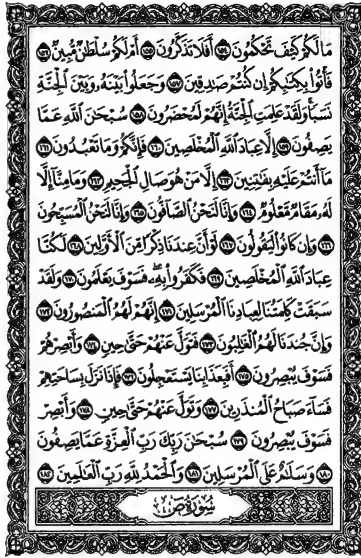 مَا لَكُمْ كَيْفَ تَحْكُمُونَ ١٥٤ أَفَلَا تَذَكَّرُونَ ١٥٥ أَمْ لَكُمْ سُلْطَٰنٌ مُّبِينٌ ١٥٦
فَأْتُوا۟ بِكِتَٰبِكُمْ إِن كُنتُمْ صَٰدِقِينَ ١٥٧ وَجَعَلُوا۟ بَيْنَهُۥ وَبَيْنَ ٱلْجِنَّةِ
نَسَبًا وَلَقَدْ عَلِمَتِ ٱلْجِنَّةُ إِنَّهُمْ لَمُحْضَرُونَ ١٥٨ سُبْحَٰنَ ٱللَّهِ عَمَّا
يَصِفُونَ ١٥٩ إِلَّا عِبَادَ ٱللَّهِ ٱلْمُخْلَصِينَ ١٦٠ فَإِنَّكُمْ وَمَا تَعْبُدُونَ ١٦١
مَآ أَنتُمْ عَلَيْهِ بِفَٰتِنِينَ ١٦٢ إِلَّا مَنْ هُوَ صَالِ ٱلْجَحِيمِ ١٦٣ وَمَا مِنَّآ إِلَّا
لَهُۥ مَقَامٌ مَّعْلُومٌ ١٦٤ وَإِنَّا لَنَحْنُ ٱلصَّآفُّونَ ١٦٥ وَإِنَّا لَنَحْنُ ٱلْمُسَبِّحُونَ
١٦٦ وَإِن كَانُوا۟ لَيَقُولُونَ ١٦٧ لَوْ أَنَّ عِندَنَا ذِكْرًا مِّنَ ٱلْأَوَّلِينَ ١٦٨ لَكُنَّا
عِبَادَ ٱللَّهِ ٱلْمُخْلَصِينَ ١٦٩ فَكَفَرُوا۟ بِهِۦ فَسَوْفَ يَعْلَمُونَ ١٧٠ وَلَقَدْ
سَبَقَتْ كَلِمَتُنَا لِعِبَادِنَا ٱلْمُرْسَلِينَ ١٧١ إِنَّهُمْ لَهُمُ ٱلْمَنصُورُونَ ١٧٢
وَإِنَّ جُندَنَا لَهُمُ ٱلْغَٰلِبُونَ ١٧٣ فَتَوَلَّ عَنْهُمْ حَتَّىٰ حِينٍ ١٧٤ وَأَبْصِرْهُمْ
فَسَوْفَ يُبْصِرُونَ ١٧٥ أَفَبِعَذَابِنَا يَسْتَعْجِلُونَ ١٧٦ فَإِذَا نَزَلَ بِسَاحَتِهِمْ
فَسَآءَ صَبَاحُ ٱلْمُنذَرِينَ ١٧٧ وَتَوَلَّ عَنْهُمْ حَتَّىٰ حِينٍ ١٧٨ وَأَبْصِرْ
فَسَوْفَ يُبْصِرُونَ ١٧٩ سُبْحَٰنَ رَبِّكَ رَبِّ ٱلْعِزَّةِ عَمَّا يَصِفُونَ
١٨٠ وَسَلَٰمٌ عَلَى ٱلْمُرْسَلِينَ ١٨١ وَٱلْحَمْدُ لِلَّهِ رَبِّ ٱلْعَٰلَمِينَ ١٨٢
سُورَةُ ص